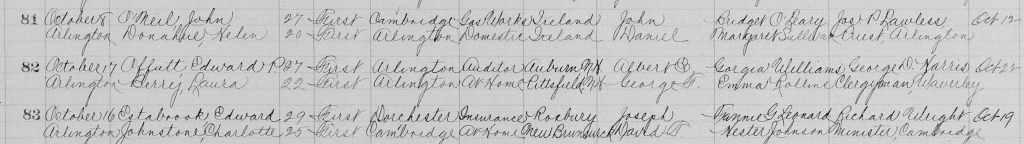 81 October 8 O'Neil, John 27 First Cambridge Gas Works Ireland John Bridget O'Leary Jos P Lawless Oct 12
Arlington Donahue, Helen 20 First Arlington Domestic Ireland Daniel Margaret Priest, Arlington
82 October 17 Offutt, Edward P 27 First Arlington Auditor Auburn NH Albert E. Gorgia Williams, George D. Harris Oct 22
Arlington Berry, Laura 22 First Arlington At Home Pittsfield, NH George F. Emma Rollins Clergyman Waverley
83 October 16 Estabrook Edward 29 First Dorchester Insurance Roxbury Joseph Fannie G Leonard Richard Wright Oct 19
Arlington Johnstone, Charlotte 25 First Cambridge At Home New Brunswick David T Hester Johnson Minister, Cambridge